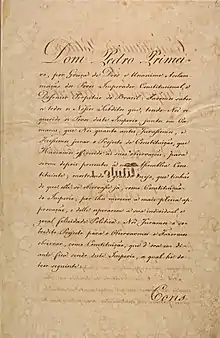 Dom Pedro Primei-
ro, por Graça de Deos e Unanime Acclam
mação dos Povos Imperador Constitucional, e
Defensor Perpetuo do Brazil: Fazemos saber
a todos os Nossos Subditos que, tendo-Nos re
querido os Povos deste Imperio juntos em Ca-
maras, que Nós quanto antes Jurassemos, e
Fizessemos jurar o Projecto de Constituição, que
Haviamos offerecido ás suas observações, para
serem depois presentes á nova Assemblea Cons
tituinte, desejo, que tinhão
de que elle se observasse já, como Constituição
do Imperio, por lhes merecer a mais plena ap
provação, e delle esperarem a sua individual, e
geral felicidade Politica: Nós Juramos o
sobredito Projecto para o Observarmos e Fazermos
observar, como Constituição, que d'ora em di
ante fica sendo deste Imperio, a qual he do
teor seguinte: